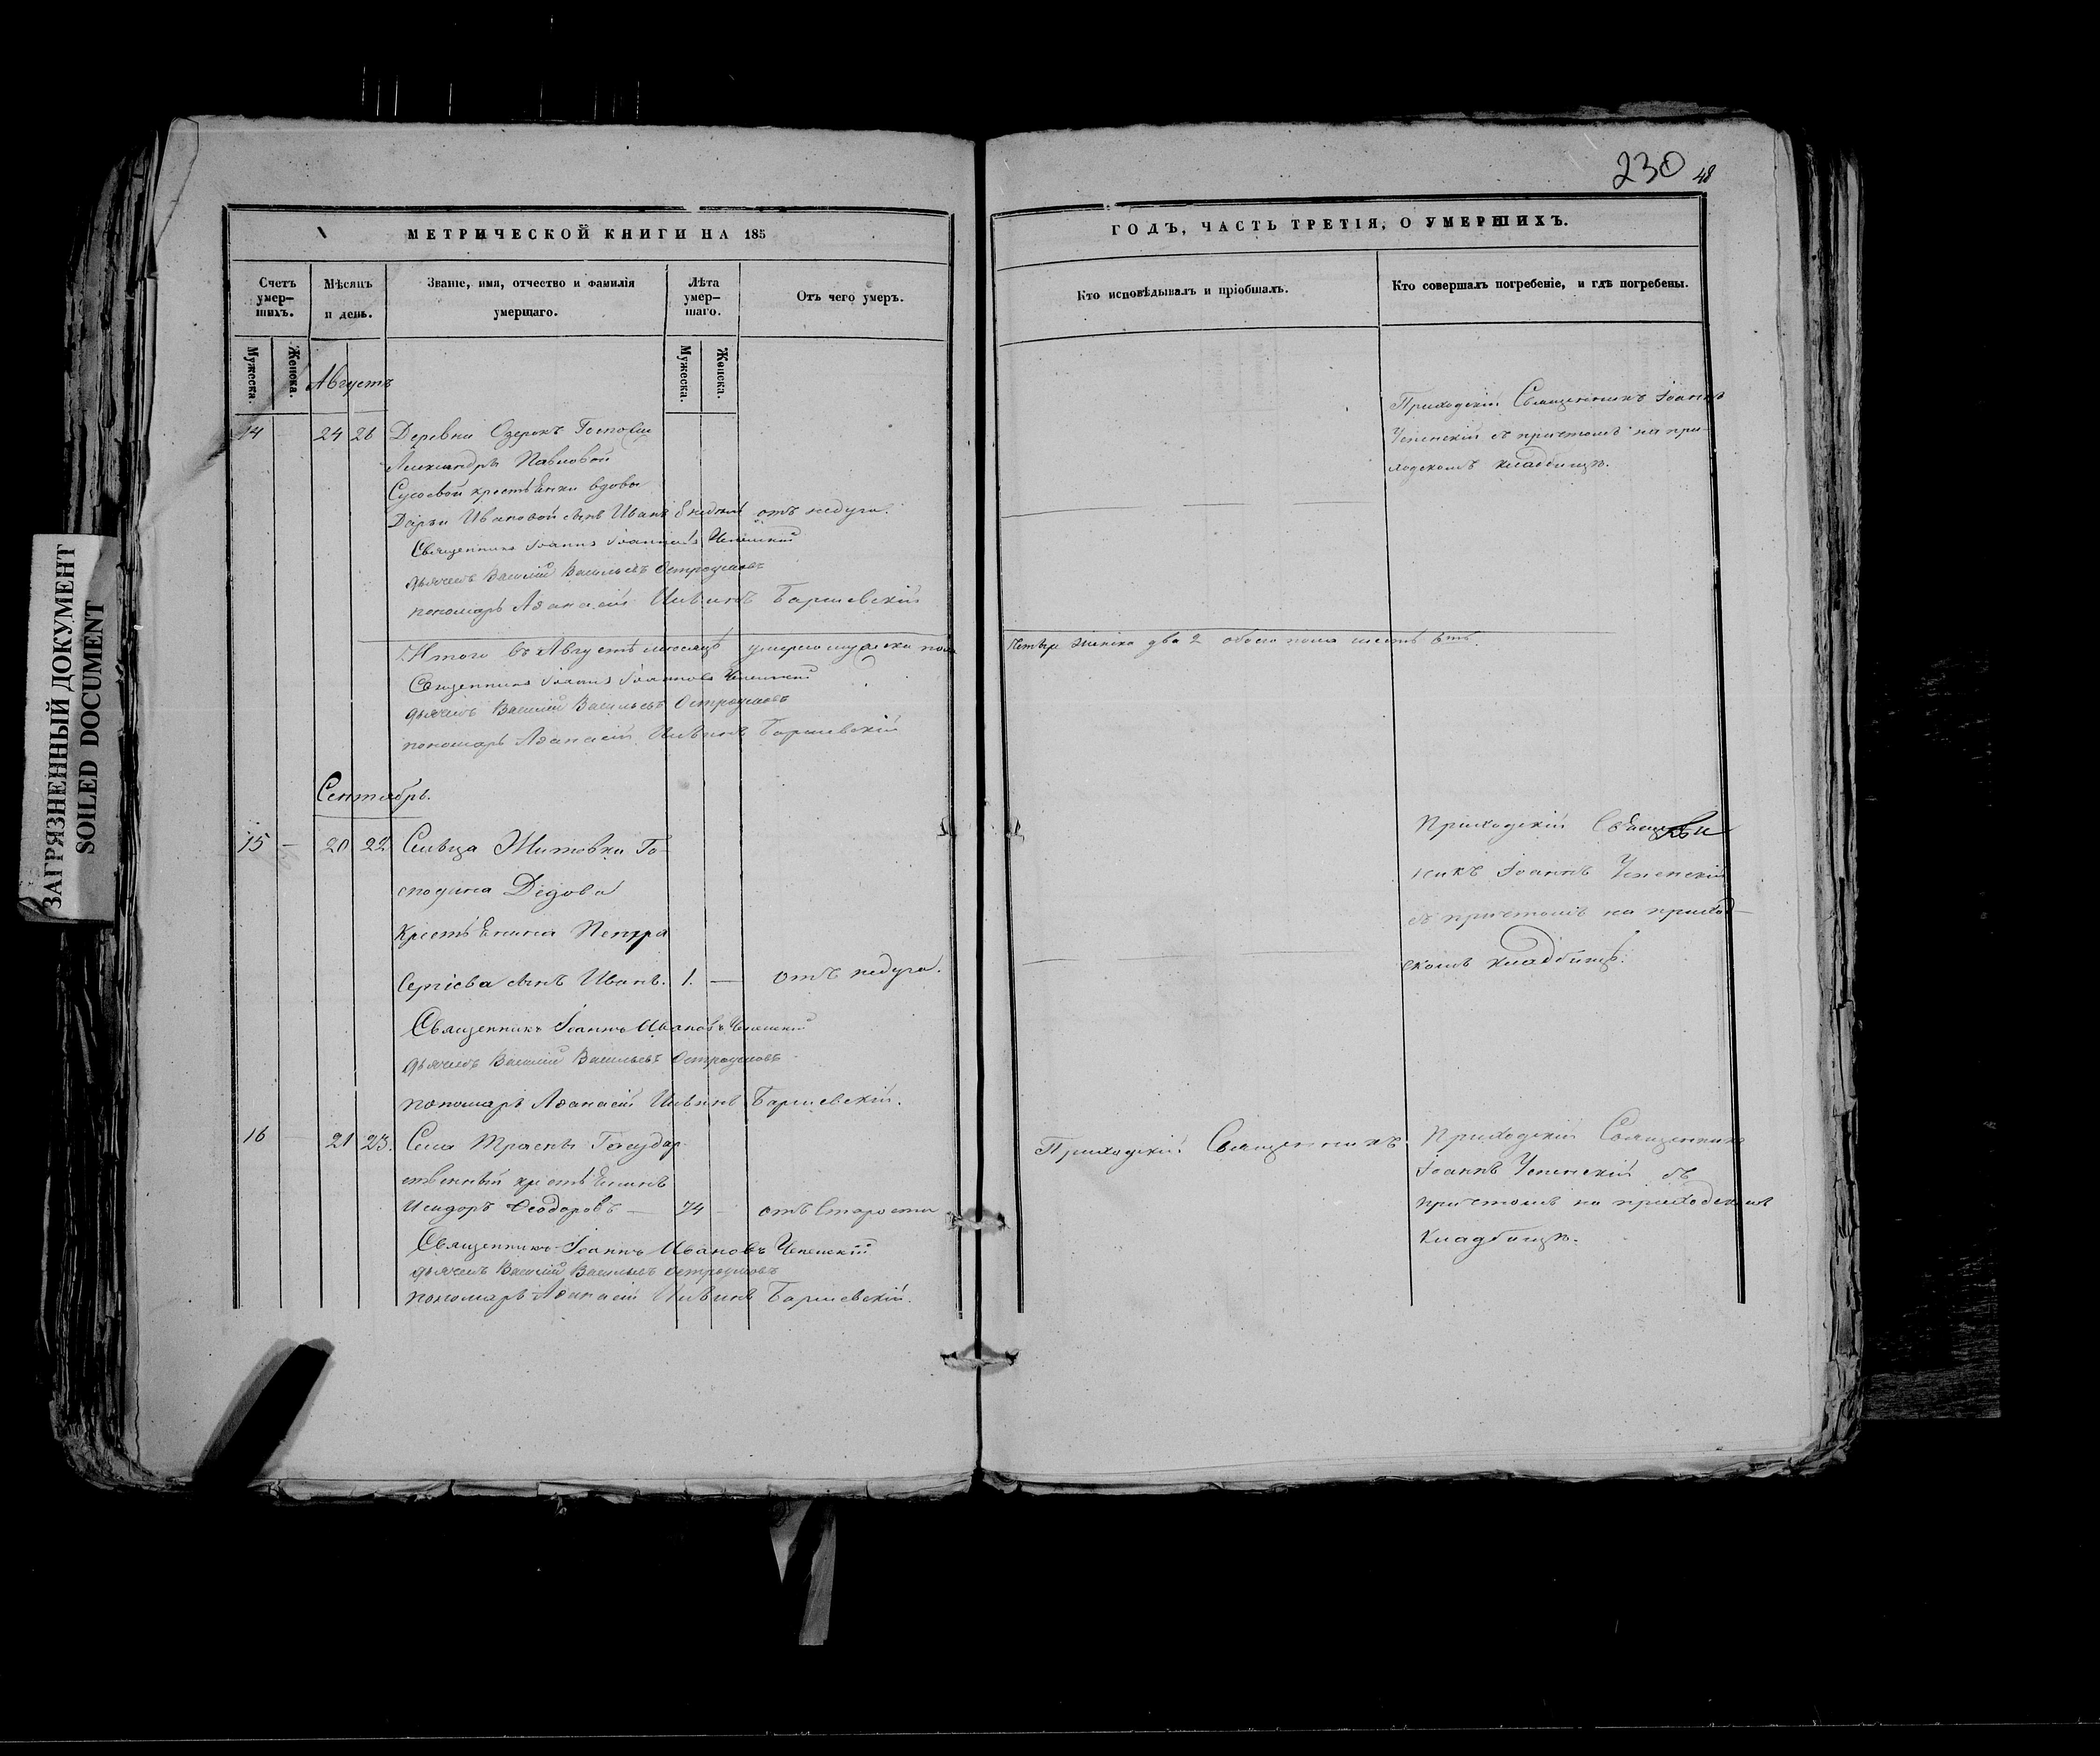 230 48
МЕТРИЧЕСКОЙ КНИГИ НА 185
ГОДЪ, ЧАСТЬ ТРЕТІЯ, О УМЕРШИХЪ.
Счетъ умер-шихъ.
Мѣсяцъ и день.
Званіе, имя, отчество и фамилія умершаго.
Лѣта умер-шаго.
Отъ чего умеръ.
Кто исповѣдывалъ и пріобщалъ.
Кто совершалъ погребеніе, и гдѣ погребены.
Мужеска. Женска.
Мужеска. Женска.
Августъ
14 24 26 Деревни Озерокъ Госпожи
Александры Павловой
крестьянки вдовы
Дарьи Ивановой сынъ Иванъ отъ недуга.
Священникъ Іоаннъ Іоанновъ Успенскій
дьячекъ Василій Васильевъ Остроумовъ
пономарь Аѳанасій Ивинъ Баршевскій
Приходскій Священникъ Іоаннъ
Успенскій съ причтомъ на при-
ходскомъ кладбищѣ.
Итого въ Августѣ мѣсяцѣ умерло мужеска пола
четыре женска два 2 обоего пола шесть
Священникъ Іоаннъ Іоанновъ Успенскій
дьячекъ Василій Васильевъ Остроумовъ
пономарь Аѳанасій Ивинъ Баршевскій
Сентябрь.
15 — 20 22 Сельца Житовки Го-
сподина Дедова
крестьянина Петра
Сергіева сынъ Иванъ. 1. — отъ недуга.
Священникъ Іоаннъ Ивановъ Успенскій
дьячекъ Василій Васильевъ Остроумовъ
пономарь Аѳанасій Ивинъ Баршевскій.
Приходскій Священ
никъ Іоаннъ Успенскій
съ причтомъ на приход-
скомъ кладбищѣ.
16 21 23. Села Трасны Государ-
ственный крестьянинъ
Исидоръ Ѳеодоровъ — 74 — отъ старости
Священникъ Іоаннъ Ивановъ Успенскій
дьячекъ Василій Васильевъ Остроумовъ
пономарь Аѳанасій Ивинъ Баршевскій.
Приходскій Священникъ
Приходскій Священникъ
Іоаннъ Успенскій съ
причтомъ на приходскомъ
кладбищѣ.
ЗАГРЯЗНЕННЫЙ ДОКУМЕНТ
SOILED DOCUMENT